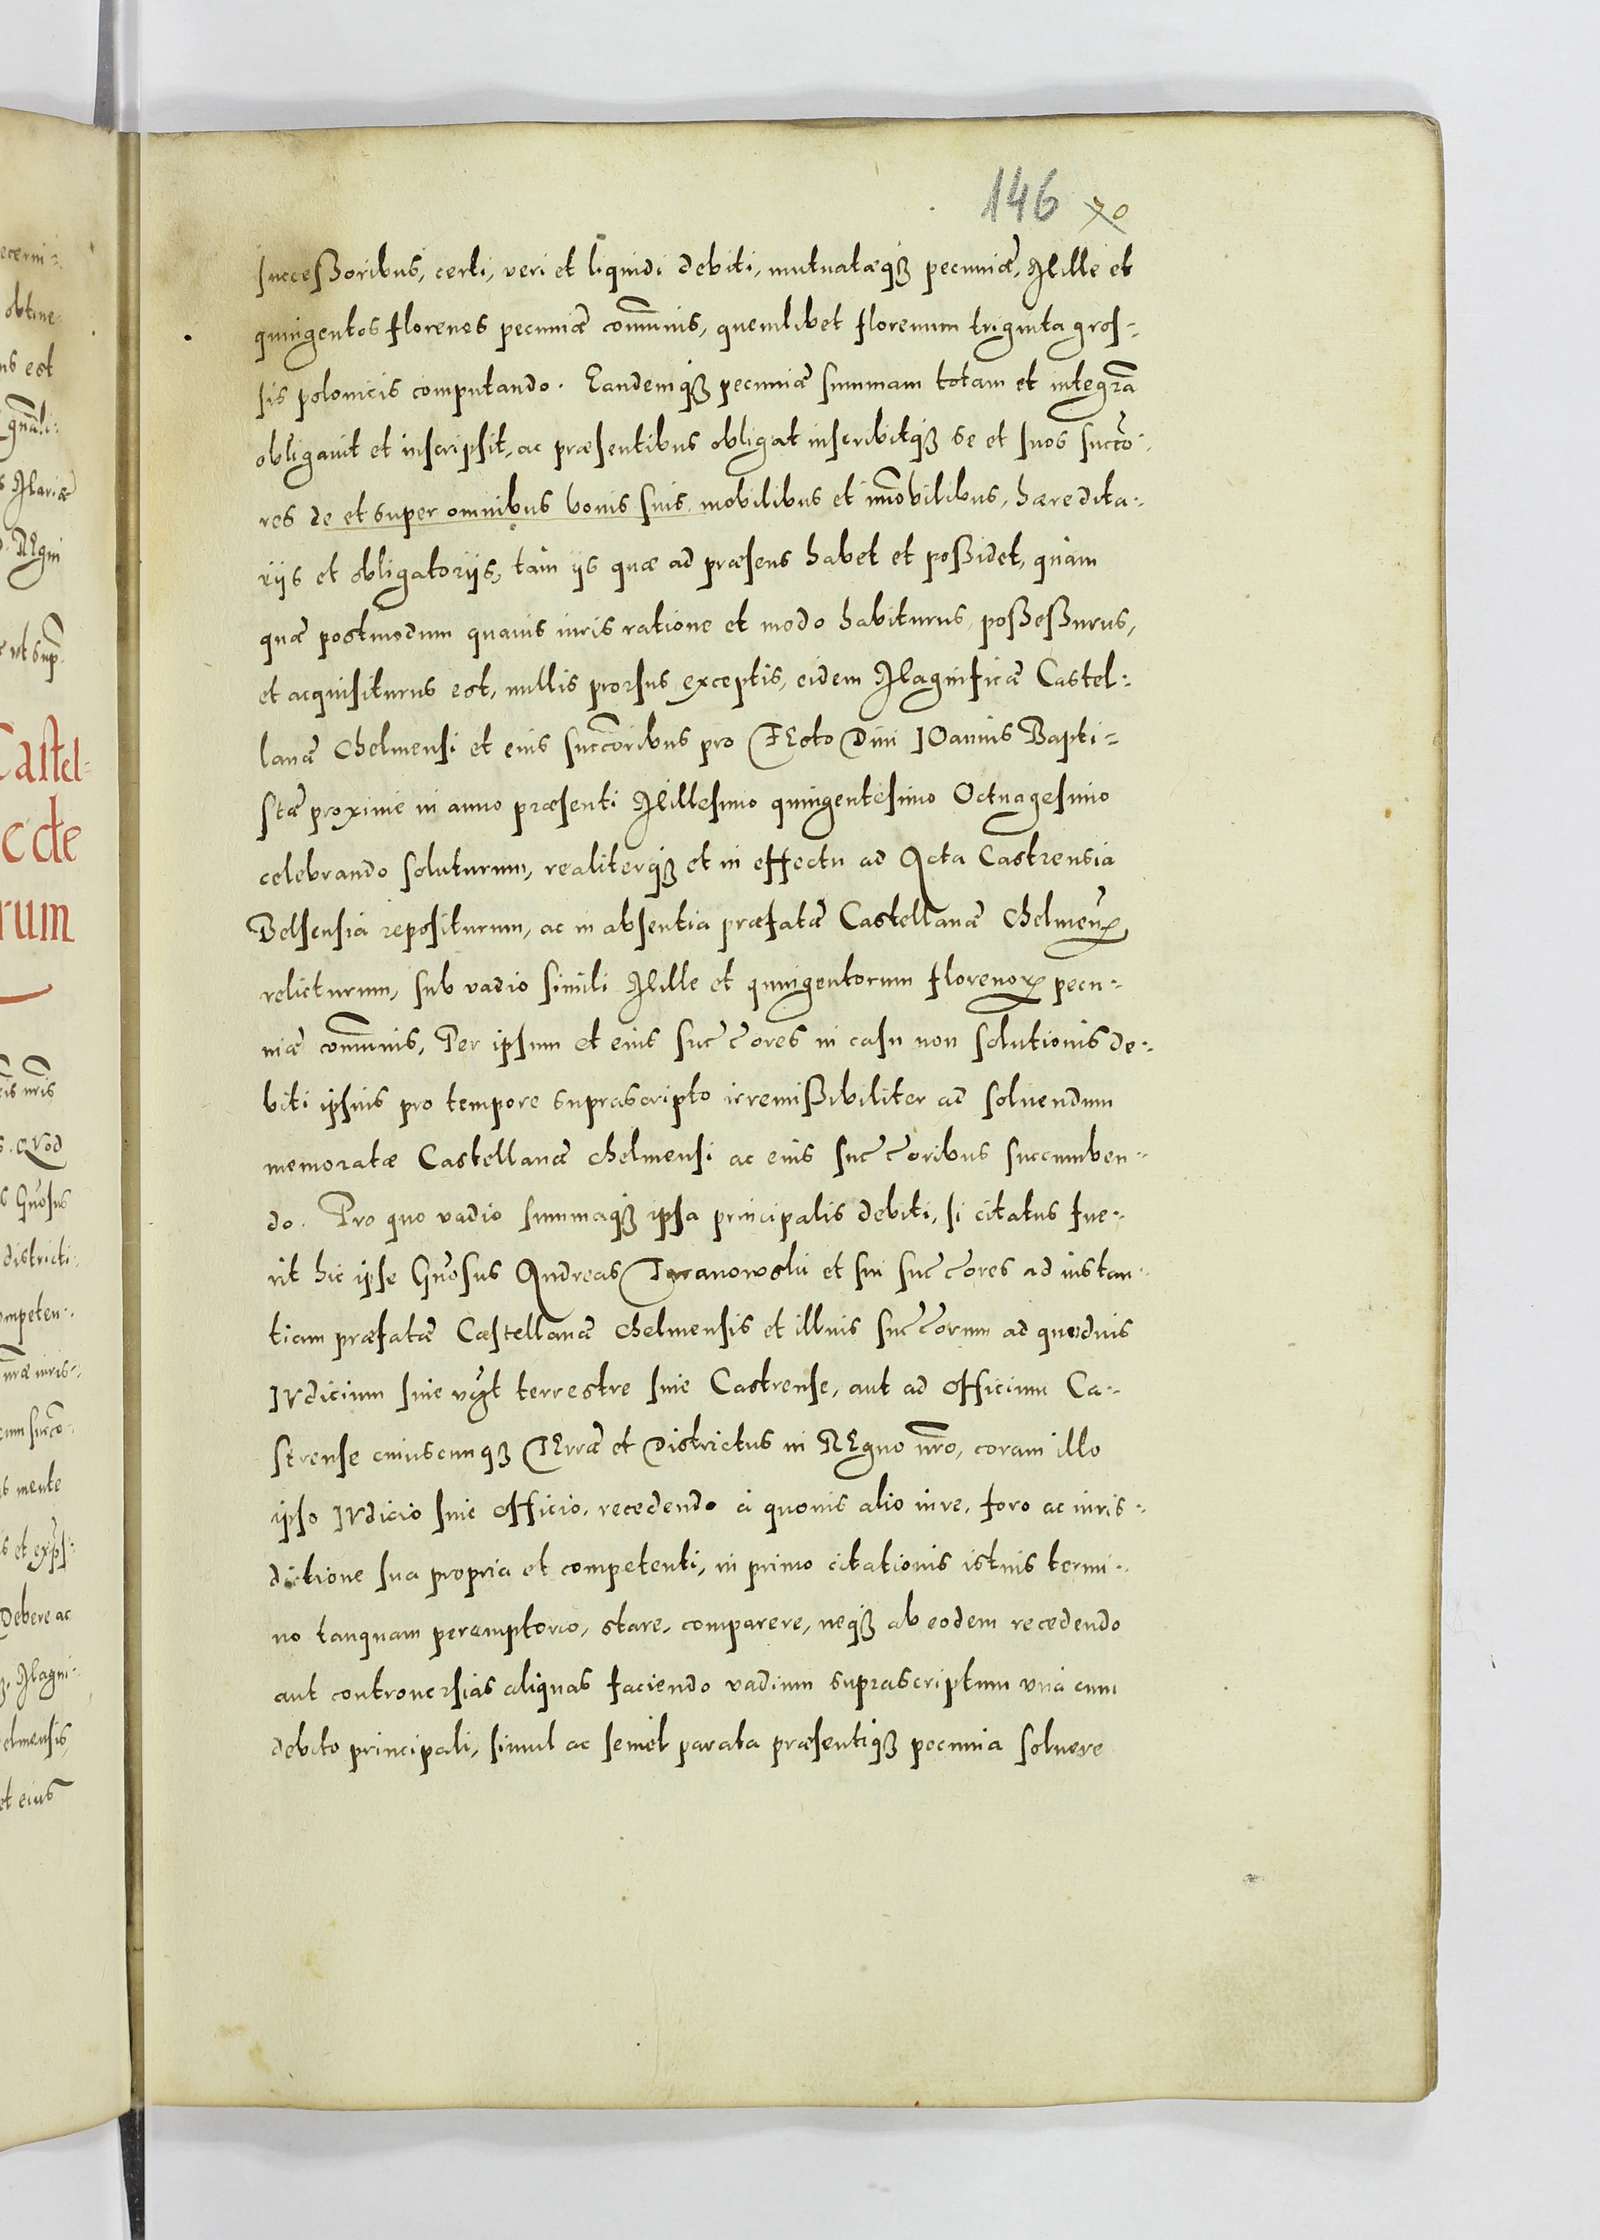 146 70
succeßoribus, certi, veri et liquidi debiti, mutuatæqȝ pecuniæ, Mille et
quingentos florenos pecuniæ com̃unis, quemlibet florenum triginta gros-
sis polonicis computando. Eandemqȝ pecuniæ summam totam et integrã
obligauit et inscripsit, ac præsentibus obligat inscribitqȝ se et suos succõ-
res de et super omnibus bonis suis, mobilibus et im̃obilibus, hæredita-
rijs et obligatorijs, tam ijs quæ ad præsens habet et poßidet, quàm
quæ postmodum quauis iuris ratione et modo habiturus, poßeßurus,
et acquisiturus est, nullis prorsus exceptis, eidem Magnificæ Castel-
lanæ Chelmensi et eius succõribus pro FEsto Diui IOannis Bapti-
stæ proxime in anno præsenti Millesimo quingentesimo Octuagesimo
celebrando soluturum, realiterqȝ et in effectu ad Acta Castrensia
Belsensia repositurum, ac in absentia præfatæ Castellanæ Chelmeñ,
relicturum, sub vadio simili Mille et quingentorum florenoꝝ pecu-
niæ com̃unis, Per ipsum et eius succ̃ores in casu non solutionis de-
biti ipsius pro tempore suprascripto irremißibiliter ad soluendum
memoratæ Castellanæ Chelmensi ac eius succ̃oribus succumben-
do. Pro quo vadio summaqȝ ipsa principalis debiti, si citatus fue-
rit hic ipse Gñosus Andreas Taranowski et sui succ̃ores ad instan-
tiam præfatæ Castellanæ Chelmensis et illius succ̃orum ad quoduis
IVdicium siue vz̃t terrestre siue Castrense, aut ad Officium Ca-
strense cuiuscunqȝ TErræ et Districtus in REgno ñro, coram illo
ipso IVdicio siue Officio, recedendo à quouis alio iure, foro ac iuris-
dictione sua propria et competenti, in primo citationis istius termi-
no tanquam peremptorio, stare, comparere, neqȝ ab eodem recedendo
aut controuersias aliquas faciendo vadium suprascriptum vnà cum
debito principali, simul ac semel parata præsentiqȝ pecunia soluere
obtine-
est
Castel-
rum
mente
Debere ac
et eius